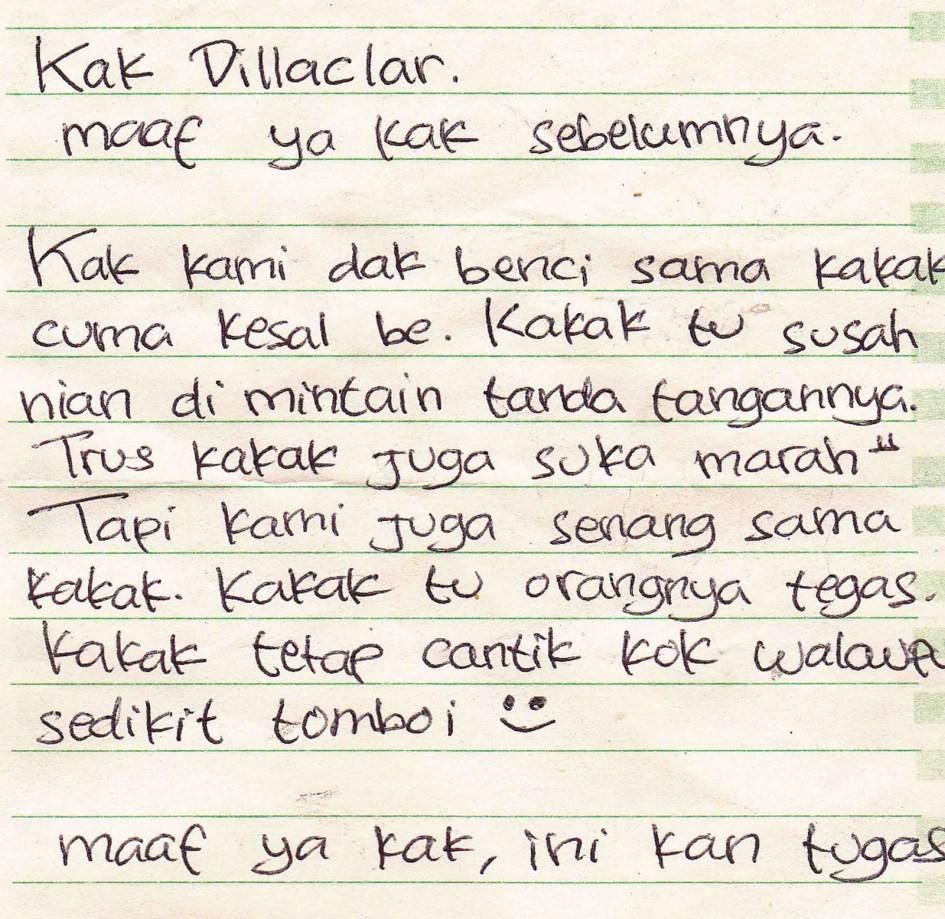 Kak Dillaclar.
maaf ya kak sebelumnya.
Kak kami dak benci sama kakak
cuma kesal be. Kakak tu susah
nian di mintain tanda tangannya.
Trus kakak juga suka marah"
Tapi kami juga senang sama
kakak. Kakak tu orangnya tegas.
Kakak tetap cantik kok walau
sedikit tomboi
maaf ya kak, ini kan tugas